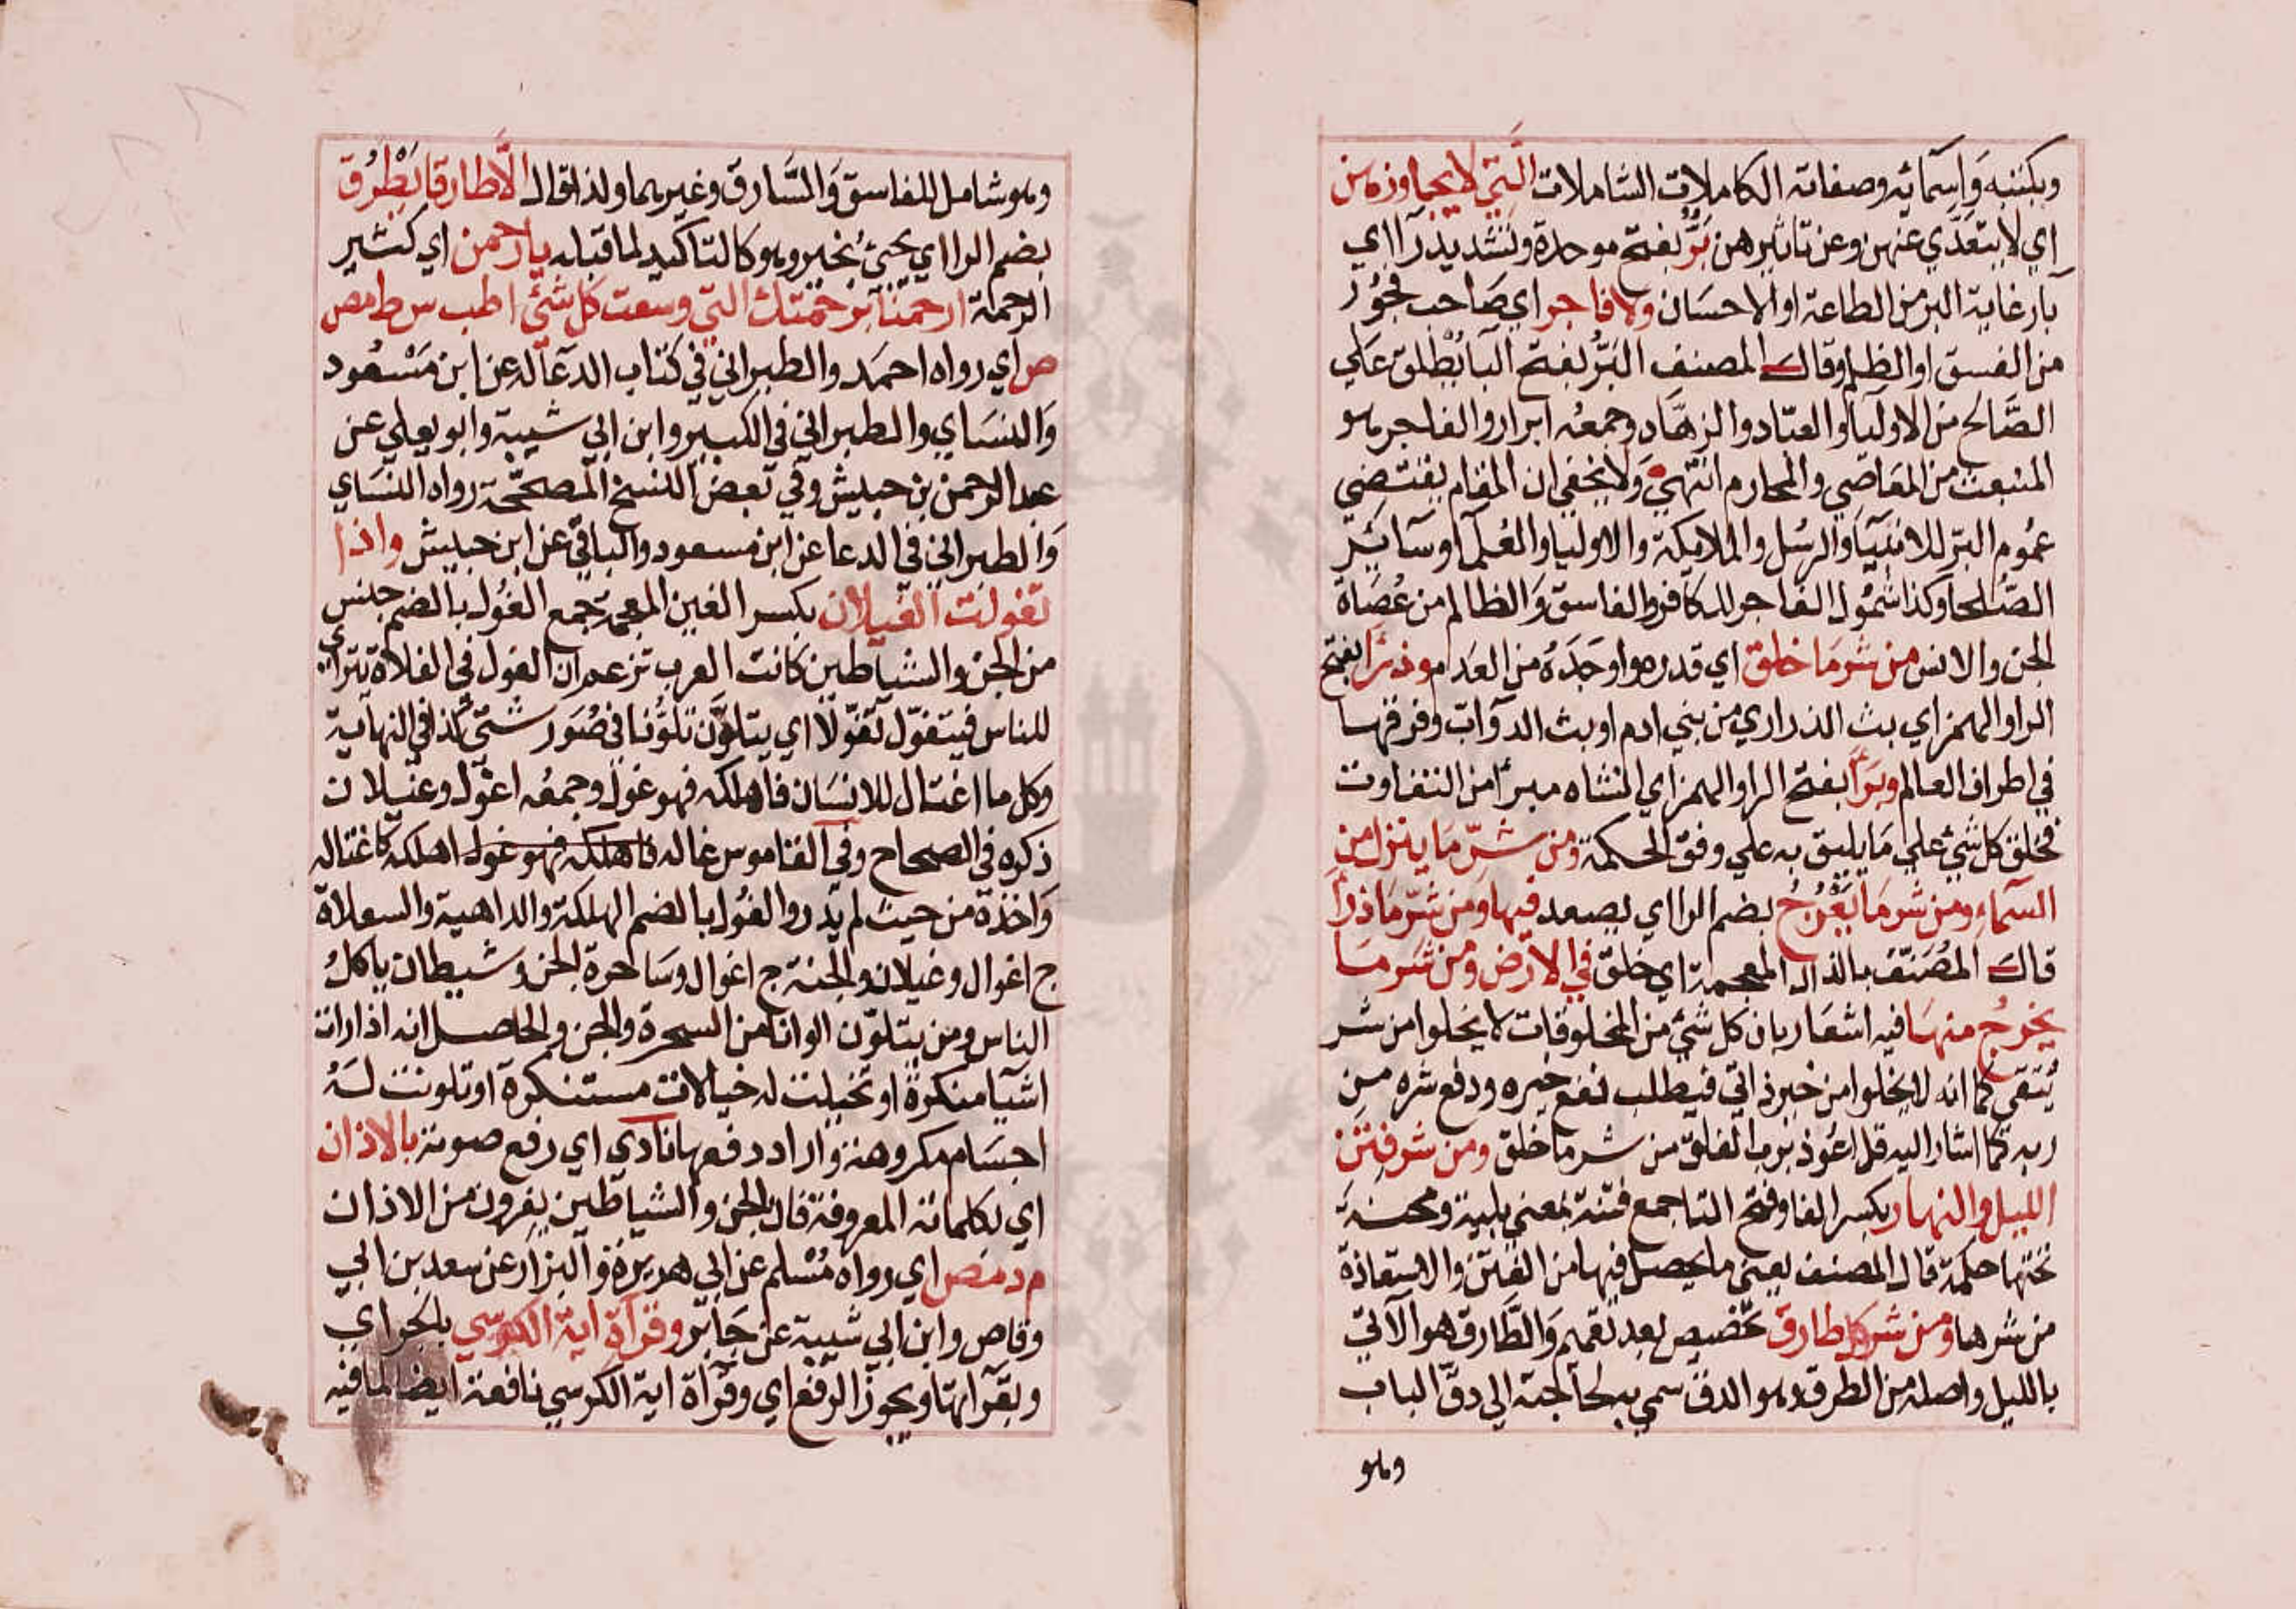 وبكتبه وَاسمَائِه وصفاته الكاملات الشاملات الَّتِي لا يجاوزهن
اي لا يتعَدّي عنهن وعن تاثيرهن بَرٌّ بفتح موحدة وتشديد رآ اي
بآر غاية البر من الطاعة او الاحسَان ولا فاجر اي صَاحب فجُوُر
من الفسق او الظلم وقال المصنف البَرُّ بفتح البآ يُطْلق علي
الصَّالح من الاوليآ والعبّاد والزهَّاد وجمعُه ابرار والفاجر هو
المنبعث من المعَاصِي والمحارم انتهي وَلا يخفي ان المقام يقتضي
عمُوم البَرّ للانبيَآ والرسُل والملايكة والاوليا والعُلمآ وسآئِر
الصُّلحا وكذا شمُول الفاجر للكافر والفاسق وَالظالم من عُصَاة
الجن والانس من شر مَا خلق اي قدره او اوجَدَهُ من العَدم وذرَأَ بفتح
الرا والهمز اي بث الذراري من بني ادم او بث الدوآبّ وفرقها
في اطراف العالم وبَرَأَ بفتح الرا والهمز اي انشاه مبرأ من التفاوت
فخلق كل شيٍ علي مَا يليق به علي وفق الحكمة ومن شرّ مَا ينزل من
السمآءِ ومن شر مَا يَعْرُجُ بضم الرا اي يصعد فيها ومن شرّ مَا ذرأ
قال المُصَنّف بالذال المعجمة اي خلق في الارض ومن شر مَا
يخرُجُ منهَا فيه اشعَار بان كل شيٍ من المخلوقات لا يخلوا من شر
يُتقي كما انه لا يخلوا من خير ذاتي فيطلب نفع خيره ودفع شره من
ربه كما اشار اليه قل اعُوذ برب الفلق من شر ما خلق ومن شر فِتَن
الليل والنهار بكسر الفا وفتح التا جمع فتنة بمعني بلية ومحنة
تحتها حكمة قال المصنف يعني ما يحصل فيها من الفتن والاستعاذة
من شرها ومن شر كل طارق تخصيص بعد تعميم وَالطَّارق هو الآتي
بالليل واصله من الطرق وهو الدق سمي به لحاجته الي دقّ الباب
وهو
وهو شامل للفاسق وَالسَّارق وغيرهما ولذا قال الَّا طارقا يَطْرُق
بضم الرا اي يجئ بخير وهو كالتاكيد لما قبله يا رحمن اي كثير
الرحمة ارحمنا برحمتك التي وسعت كل شئ اطب س ط مص
ص اي رواه احمَد والطبراني في كتاب الدعآ له عن ابن مَسْعُود
وَالنسَاي والطبراني في الكبير وابن ابي شيبة وابو يعلي عن
عبد الرحمن بن حبيش وفي بعض النسخ المصحّحة رواه النسَاي
وَالطبراني في الدعا عن ابن مسعود والباقي عن ابن حبيش واذا
تغولت الغيلان بكسر الغين المعجمة جمع الغُول بالضم جنس
من الجن والشياطين كانت العرب تزعم ان الغول في الفلاة تترآي
للناس فيتغوّل تَغوّلا اي يتلوَّن تلوُّنا في صُوَر شتّي كذا في النهاية
وكل ما اغتال للانسَان فاهلكه فهو غول وجمعُه اغوال وغيلان
ذكره في الصحاح وفي القاموس غاله فاهلكه فهو غول اهلكه كاغتاله
وَاخذه من حيث لم يَدر والغُول بالضم الهلكة والداهية والسعلاة
ج اغوال وغيلان والجنة ج اغوال وسَاحرة الجن وشيطان ياكلُ
الناس ومن يتلوّن الوانا من السحرة والجن والحاصل انه اذا رات
اشيآ منكرة او تخيلت له خيالات مستنكرة او تلونت لَهُ
اجسَام مكروهة واراد دفعها نَادي اي رفع صوته بالاذان
اي بكلماته المعروفة فان الجن والشياطين يفرون من الاذان
م د مص اي رواه مُسْلم عن ابي هريرَة وَالبزار عن سعد بن ابي
وقاص وابن ابي شيبة عن جَابر وقرآة اية الكرسي بالجر اي
وبقرآتها ويجوز الرفع اي وقرآة اية الكرسي نافعة ايضا لما فيه